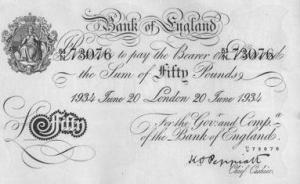 Bank of England
73076 to pay the Bearer on Demand 73076
the Sum of Fifty Pounds
1934 June 20 London 20 June 1934
For the Govr. and Compa.
Fifty of the Bank of England.
73076
K.O. Peppiatt
Chief Cashier.